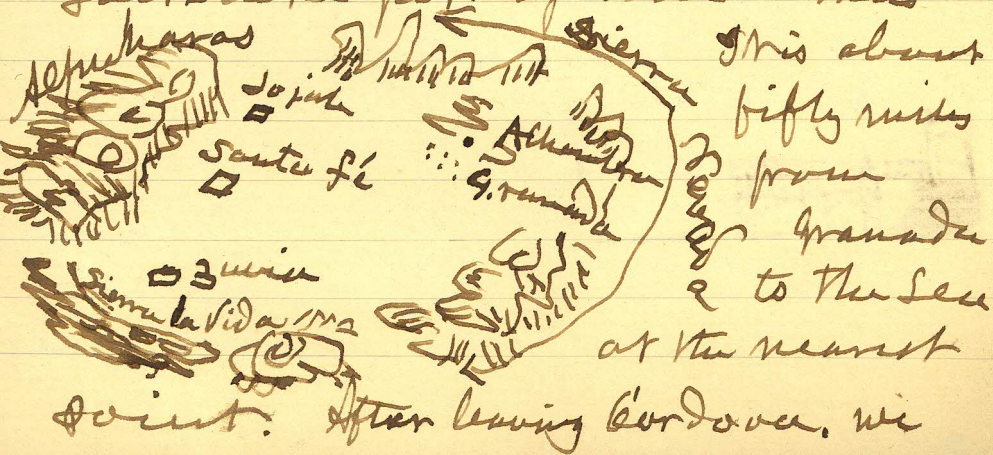 Alpucharas
Sierra
Nevada
Santa fé
Alhambra
Granada
Zuvia
Sierra la Vida
It is about
fifty miles
from
Granada
to the sea
at the nearest
point. After leaving Córdova, we